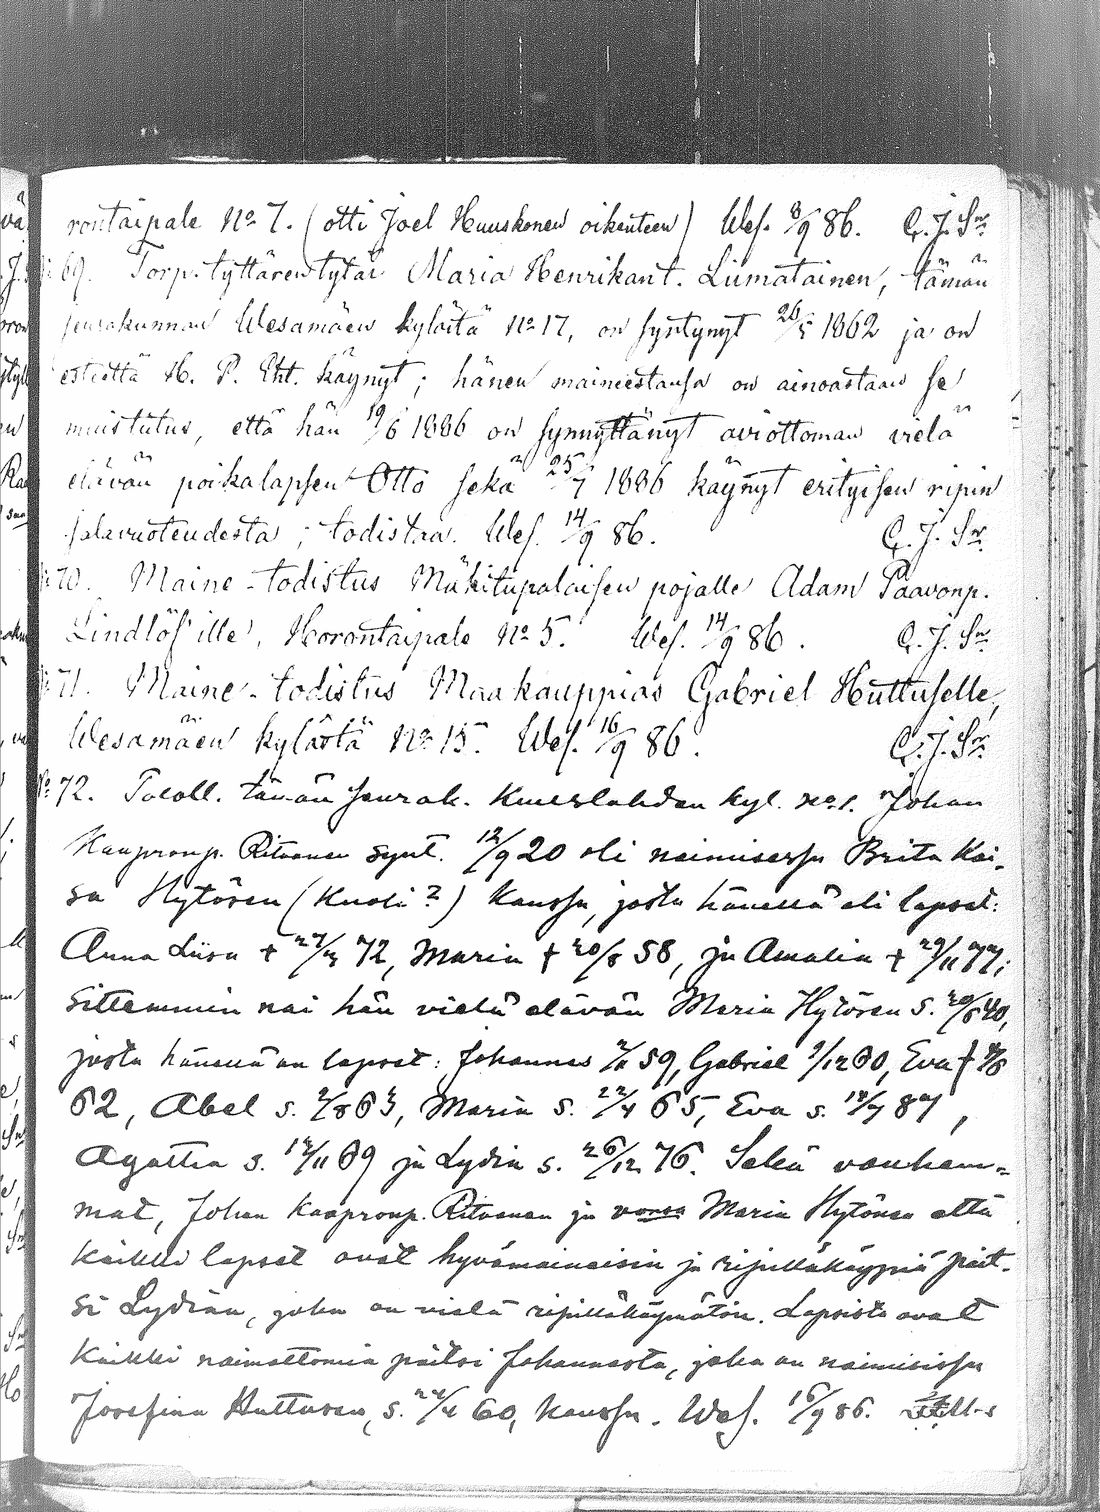 rontaipale No 7. (otti Joel Huuskonen oikeuteen) Wes. 8/9 86. C. J. Snr
No 69. Torp. tyttären tytär Maria Henrikant. Liimatainen, tämän
seurakunnan Wesamäen kylästä No 17, on syntynyt 26/5 1862 ja on
esteettä H. P. Eht. käynyt; hänen maineestansa on ainoastaan se
muistutus, että hän 19/6 1886 on synnyttänyt aviottoman vielä
elävän poikalapsen Otto sekä 25/7 1886 käynyt erityisen ripin
salavuoteudesta; todistaa. Wes. 14/9 86. C. J. Snr
No 70. Maine-todistus Mäkitupalaisen pojalle Adam Paavonp.
Lindlöf'ille, Horontaipale No 5. Wes. 14/9 86. C. J. Snr
No 71. Maine-todistus Maakauppias Gabriel Huttuselle,
Wesamäen kylästä No 15. Wes. 16/9 86. C. J. Snr
No 72. tämän seurak. kyl. No 1. Johan
Kaapronp. Ritvanen synt. 12/9 20 oli naimisessa Brita Kai-
sa Hytösen (Kuoli?) kanssa, josta hänellä oli lapset:
Anna Liisa † 72, Maria † 20/8 58, ja Amalia † 29/11 77;
sittemmin nai hän vielä elävän Maria Hytösen s. 40,
josta hänellä on lapset: Johannes 59, Gabriel 1/12 60, Eva †
62, Abel s. 2/8 63, Maria s. 22/4 65, Eva s.
Agatha s. 69 ja Lydia s. 26/12 76. Sekä vanhem-
mat, Johan Kaapronp. Ritvanen ja vaimo Maria Hytönen että
kaikki lapset ovat hyvämaineisia ja ripilläkäypiä pait-
si Lydian, joka on vielä ripilläkäymätön. Lapsista ovat
kaikki naimattomia paitsi Johannesta, joka on naimisissa
Josefina Huttusen, s. 60, kanssa. Wes. 16/9 86.